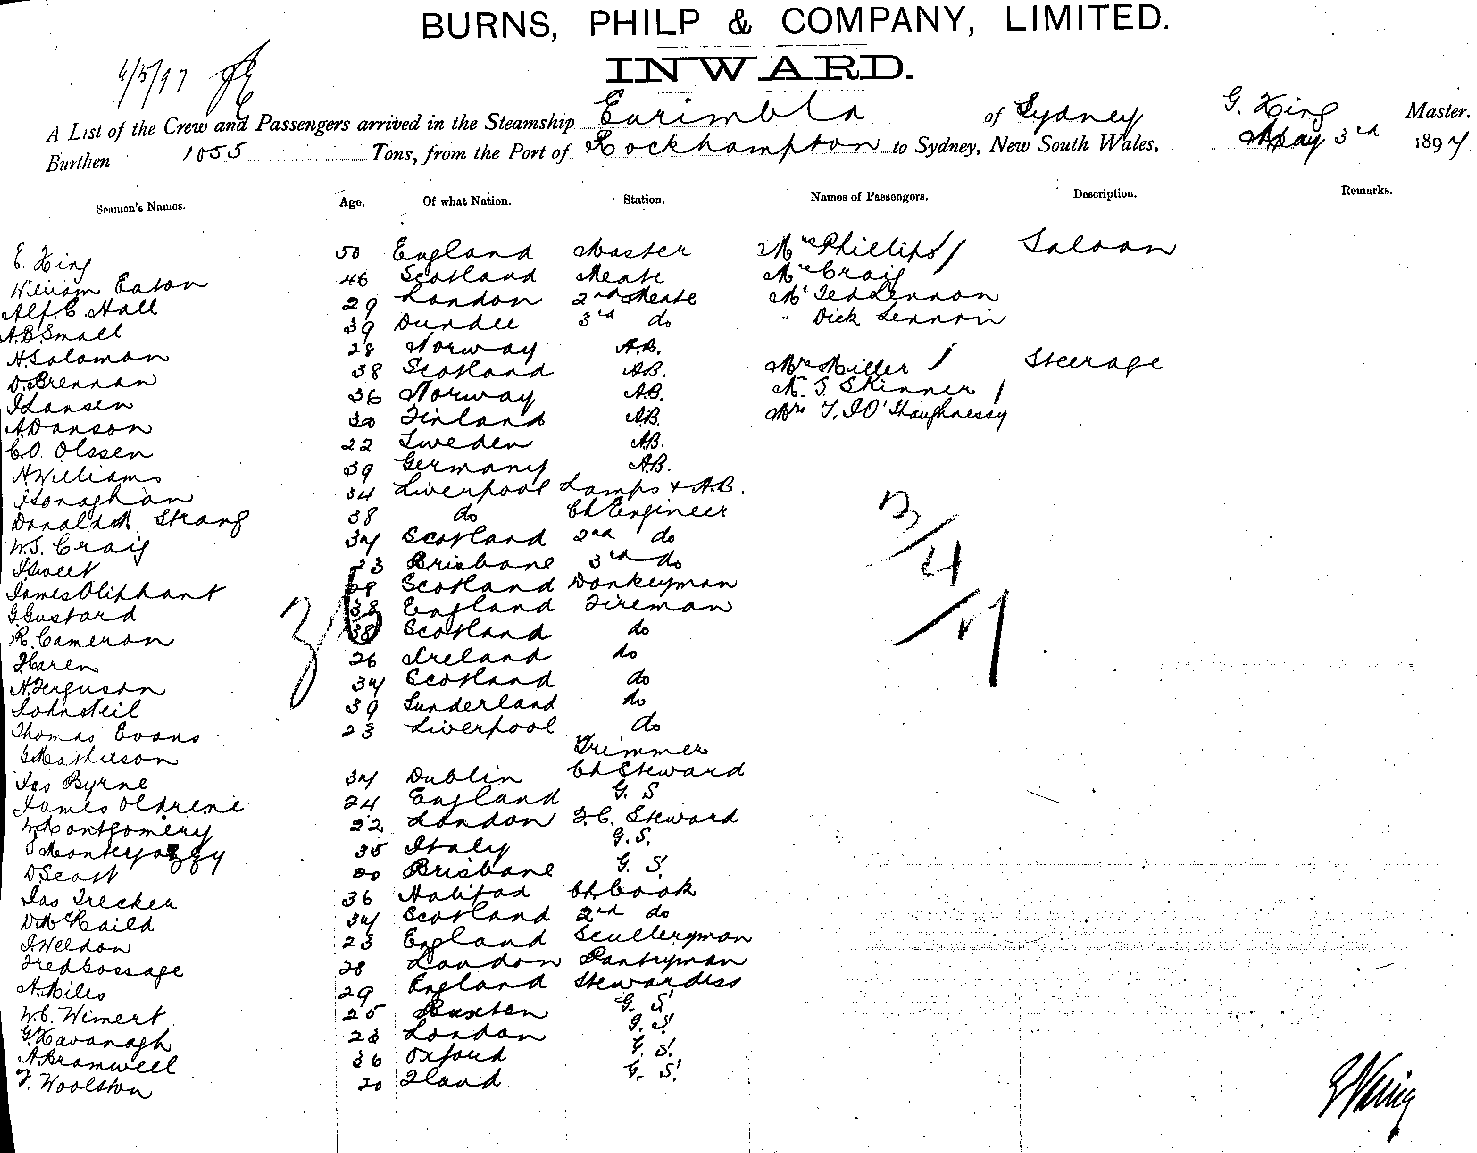 BURNS, PHILP & COMPANY, LIMITED.
INWARD.
4/5/97
A List of the Crew and Passengers arrived in the Steamship Eurimbla of Sydney G. King Master.
Burthen 1055 Tons, from the Port of Rockhampton to Sydney, New South Wales, May 3rd 1897
Seamen's Names. Age. Of what Nation. Station. Names of Passengers. Description. Remarks.
E. King 50 England Master Mrs Phillips / Saloon
William Eaton 46 Scotland Mate Craig
Alf E Hall 29 London 2nd Mate Mr Ted Lennon
A.B. Small 39 Dundee 3rd do " Dick Lennon
H. Salaman 28 Norway A.B.
D. Brennan 38 Scotland A.B. Miller / Steerage
J Lansen 36 Norway A.B. M. S Skinner /
A Danson 30 Finland A.B. Mrs T. J O'Shaughnessy
C O. Olssen 22 Sweden A.B.
H Williams 39 Germany A.B.
J Honaghan 34 Liverpool Lamps & A.B.
Donald M Strang 38 do Ch Engineer
W.S. Craig 34 Scotland 2nd do
J Sweet 23 Brisbane 3rd do
James Oliphant 38 Scotland Donkeyman
J Gustard 38 England Fireman
R. Cameron 38 Scotland do
J Haren 26 Ireland do
A Ferguson 34 Scotland do
John Neil 39 Sunderland do
Thomas Evans 23 Liverpool do
G Mathieson Trimmer
Jas Byrne 34 Dublin Ch Steward
James Oldrene 24 England G. S
W Montgomery 22 London F.C. Steward
35 Italy G. S.
D Scott 20 Brisbane G. S.
Jas Trecker 36 Halifax Ch Cook
D McHaild 34 Scotland 2nd do
J Weldon 23 England Sculleryman
Fred Gossage 28 London Pantryman
A Miles 29 England Stewardess
W.C. Wimert 25 Buxton G. S.
G Kavanagh 23 London G. S.
A Bramwell 36 Oxford G. S.
F. Woolston 20 G. S.
36
3/4/17
G King